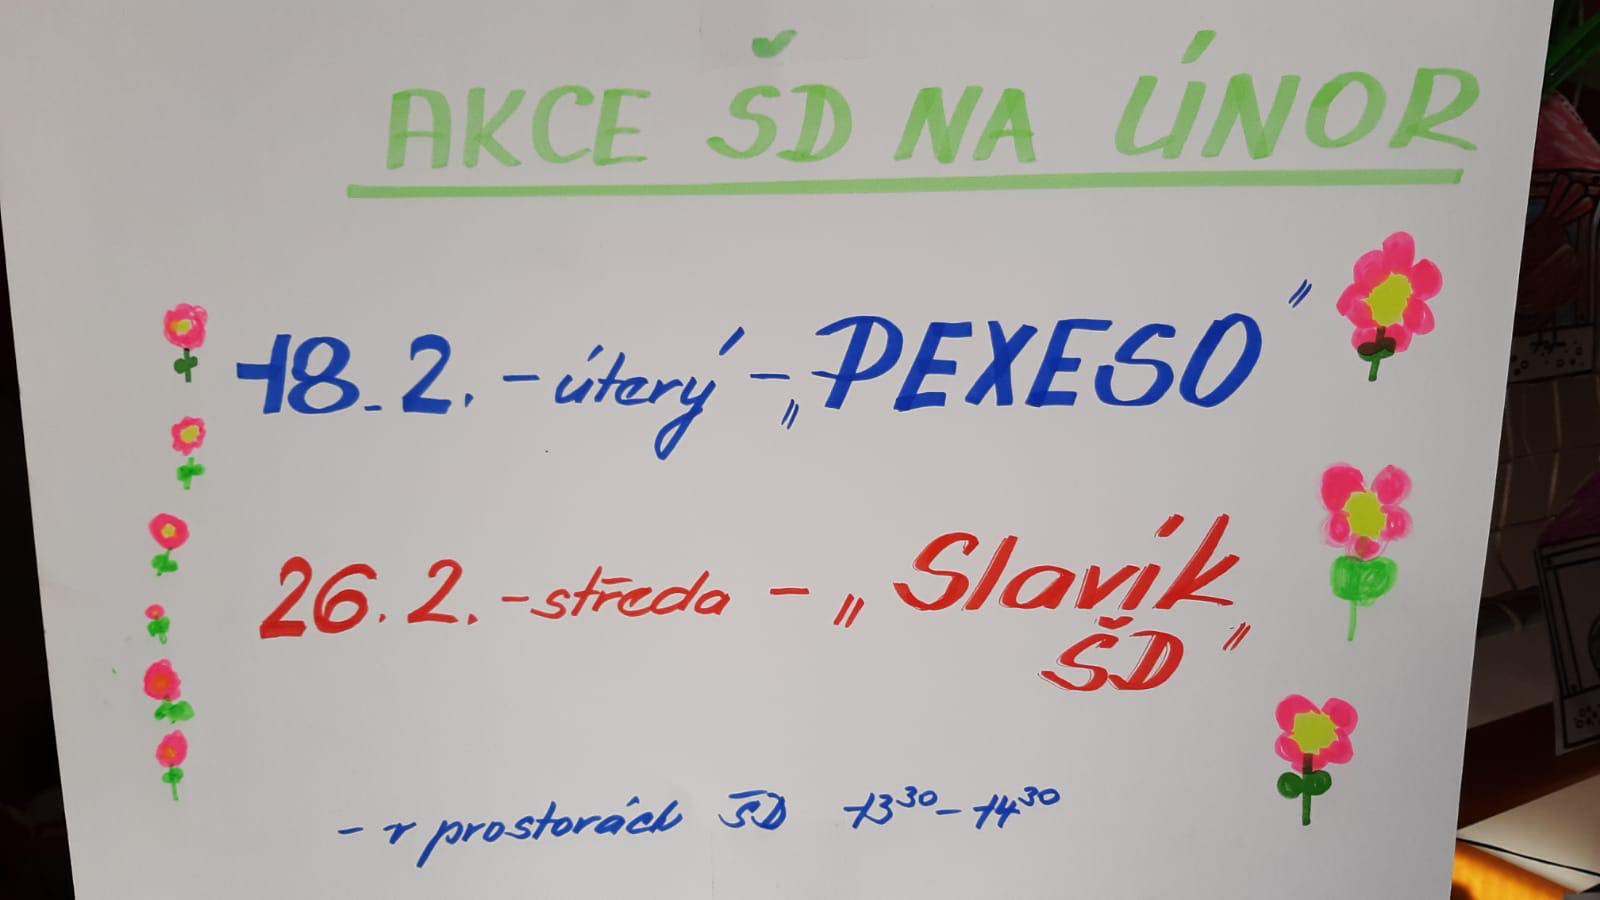 AKCE ŠD NA ÚNOR
18.2. - úterý - „PEXESO"
26.2. - středa - „Slavík
ŠD"
- v prostorách ŠD 13³⁰ - 14³⁰